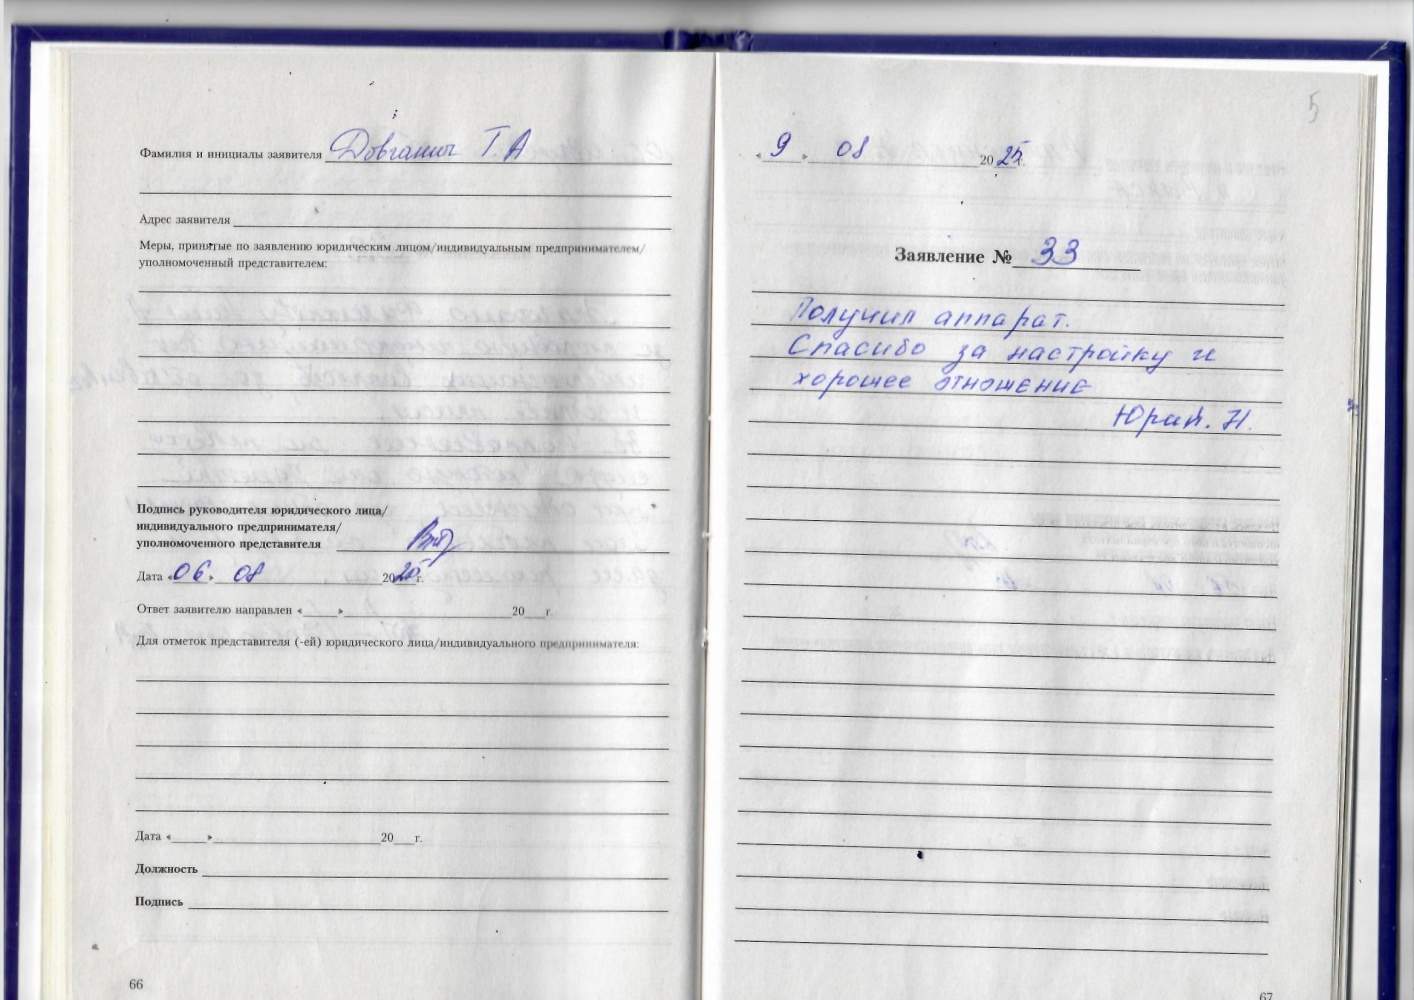 Фамилия и инициалы заявителя Довганич Т. А
Адрес заявителя
Меры, принятые по заявлению юридическим лицом/индивидуальным предпринимателем/
уполномоченный представителем:
Подпись руководителя юридического лица/
индивидуального предпринимателя/
уполномоченного представителя
Дата «06» 08 2025г.
Ответ заявителю направлен «      » 20   г.
Для отметок представителя (-ей) юридического лица/индивидуального предпринимателя:
Дата «      » 20   г.
Должность
Подпись
66
5
«9» 08 2025г.
Заявление № 33
Получил аппарат.
Спасибо за настройку и
хорошее отношение
67